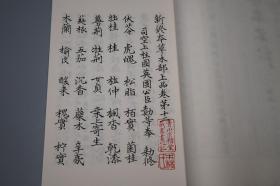 新脩本草木部上品卷第十二
司空上柱國英國公臣勣等奉 勅修
茯苓 虎魄 松脂 柏實 菌桂
牡桂 桂 杜仲 楓香 乾漆
蔓荊 牡荊 女貞 桑上寄生
蕤核 五茄 沉香 蘗木 辛夷
木蘭 榆皮 酸棗 槐實 楮實